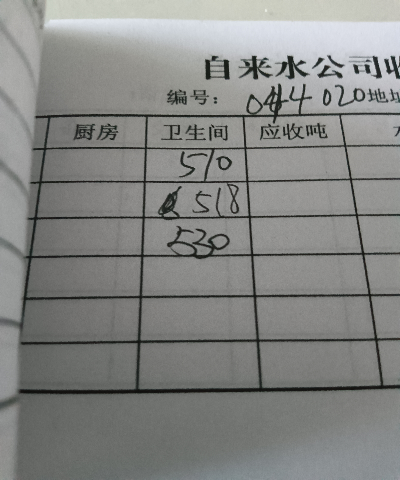 自来水公司收
编号: 044020地址
厨房 卫生间 应收吨
510
518
530